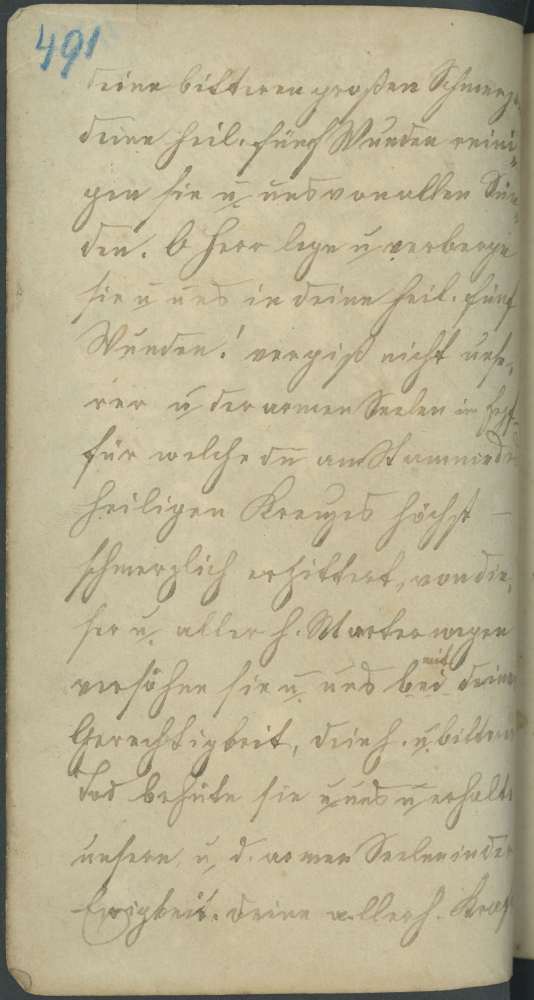 491
deine bitteren großen Schmerze
deine heil. fünf Wunden reini-
gen sie u. uns von allen Sün-
den. O Herr lege u. verberge
sie u. uns in deine heil. fünf
Wunden! vergiß nicht unse-
rer u. der armen Seelen im
für welche du am Stamme des
heiligen Kreuzes höchst –
schmerzlich erzittert, von die-
ser u. aller h. Marter wegen
versöhne sie u. uns bei mit deiner
Gerechtigkeit, dein h. u. bittere
Tod behüte sie u. uns u. erhalte
unsere, u. d. armen Seelen in der
Ewigkeit. deine allerh. Kraf